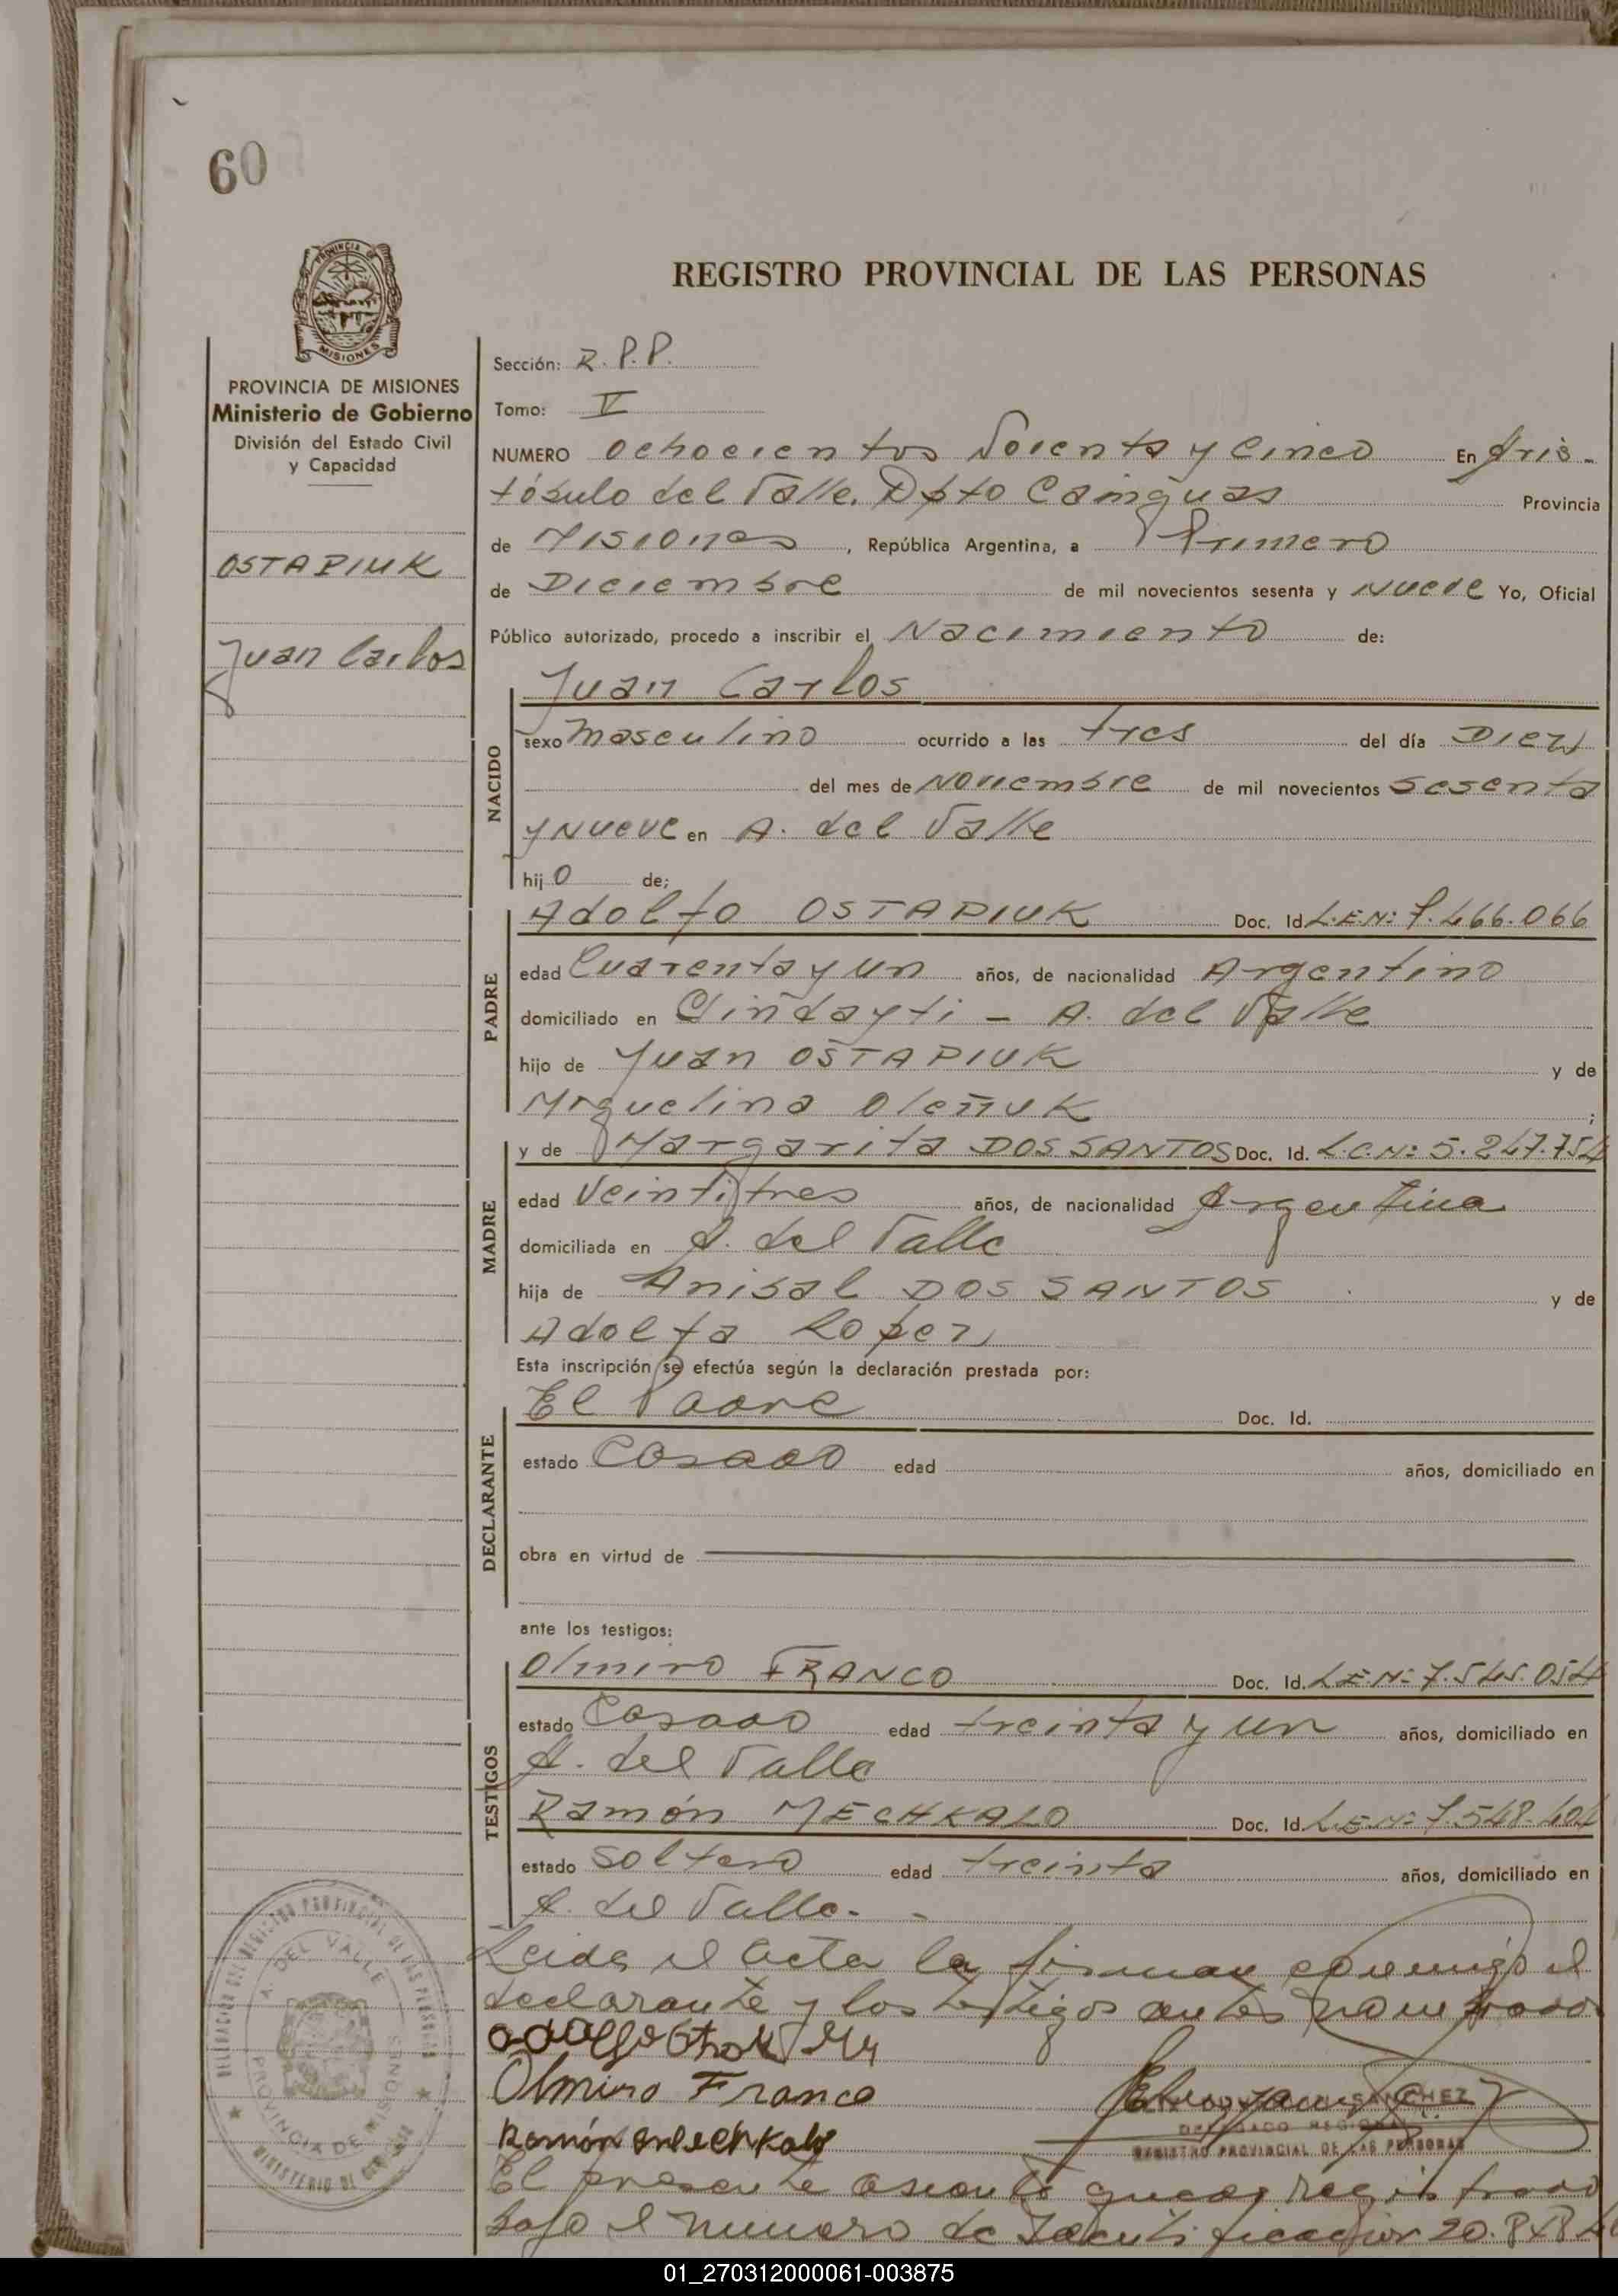 60
REGISTRO PROVINCIAL DE LAS PERSONAS
PROVINCIA DE MISIONES
Ministerio de Gobierno
División del Estado Civil
y Capacidad
OSTAPIUK
Juan Carlos
Sección: R.P.P.
Tomo: V
NUMERO Ochocientos Noventa y Cinco En Aris-
tóbulo del Valle. Dpto Cainguas Provincia
de Misiones, República Argentina, a Primero
de Diciembre de mil novecientos sesenta y Nueve Yo, Oficial
Público autorizado, procedo a inscribir el Nacimiento de:
NACIDO
Juan Carlos
sexo Masculino ocurrido a las tres del día Diez
del mes de Noviembre de mil novecientos Sesenta
y Nueve en A. del Valle
hijo de;
PADRE
Adolfo OSTAPIUK Doc. Id. L.E.N: 7.466.066
edad Cuarenta y un años, de nacionalidad Argentino
domiciliado en - A. del Valle
hijo de Juan OSTAPIUK y de
Miguelina Oleñuk;
MADRE
y de Margarita DOS SANTOS Doc. Id. L.C.N: 5.247.754
edad Veintitres años, de nacionalidad Argentina
domiciliada en A. del Valle
hija de Anibal DOS SANTOS y de
Adolfa Lopez
Esta inscripción se efectúa según la declaración prestada por:
DECLARANTE
El Padre Doc. Id.
estado Casado edad años, domiciliado en
obra en virtud de
ante los testigos:
TESTIGOS
Olmiro FRANCO Doc. Id. L.E.N: 7.545.054
estado Casado edad treinta y un años, domiciliado en
A. del Valle
Ramón MECHKALO Doc. Id. L.E.N: 7.548.404
estado Soltero edad treinta años, domiciliado en
A. del Valle.-
Leida el acta la firman conmigo el
declarante y los testigos antes nombrados
Olmiro Franco
Ramón Mechkalo
SANCHEZ
DELEGADO REGIONAL
REGISTRO PROVINCIAL DE LAS PERSONAS
DELEGACION DEL REGISTRO PROVINCIAL DE LAS PERSONAS
A. DEL VALLE
PROVINCIA DE MISIONES
MINISTERIO DE GOBIERNO
El presente asiento queda registrado
bajo el numero de Identificacion
01_270312000061-003875